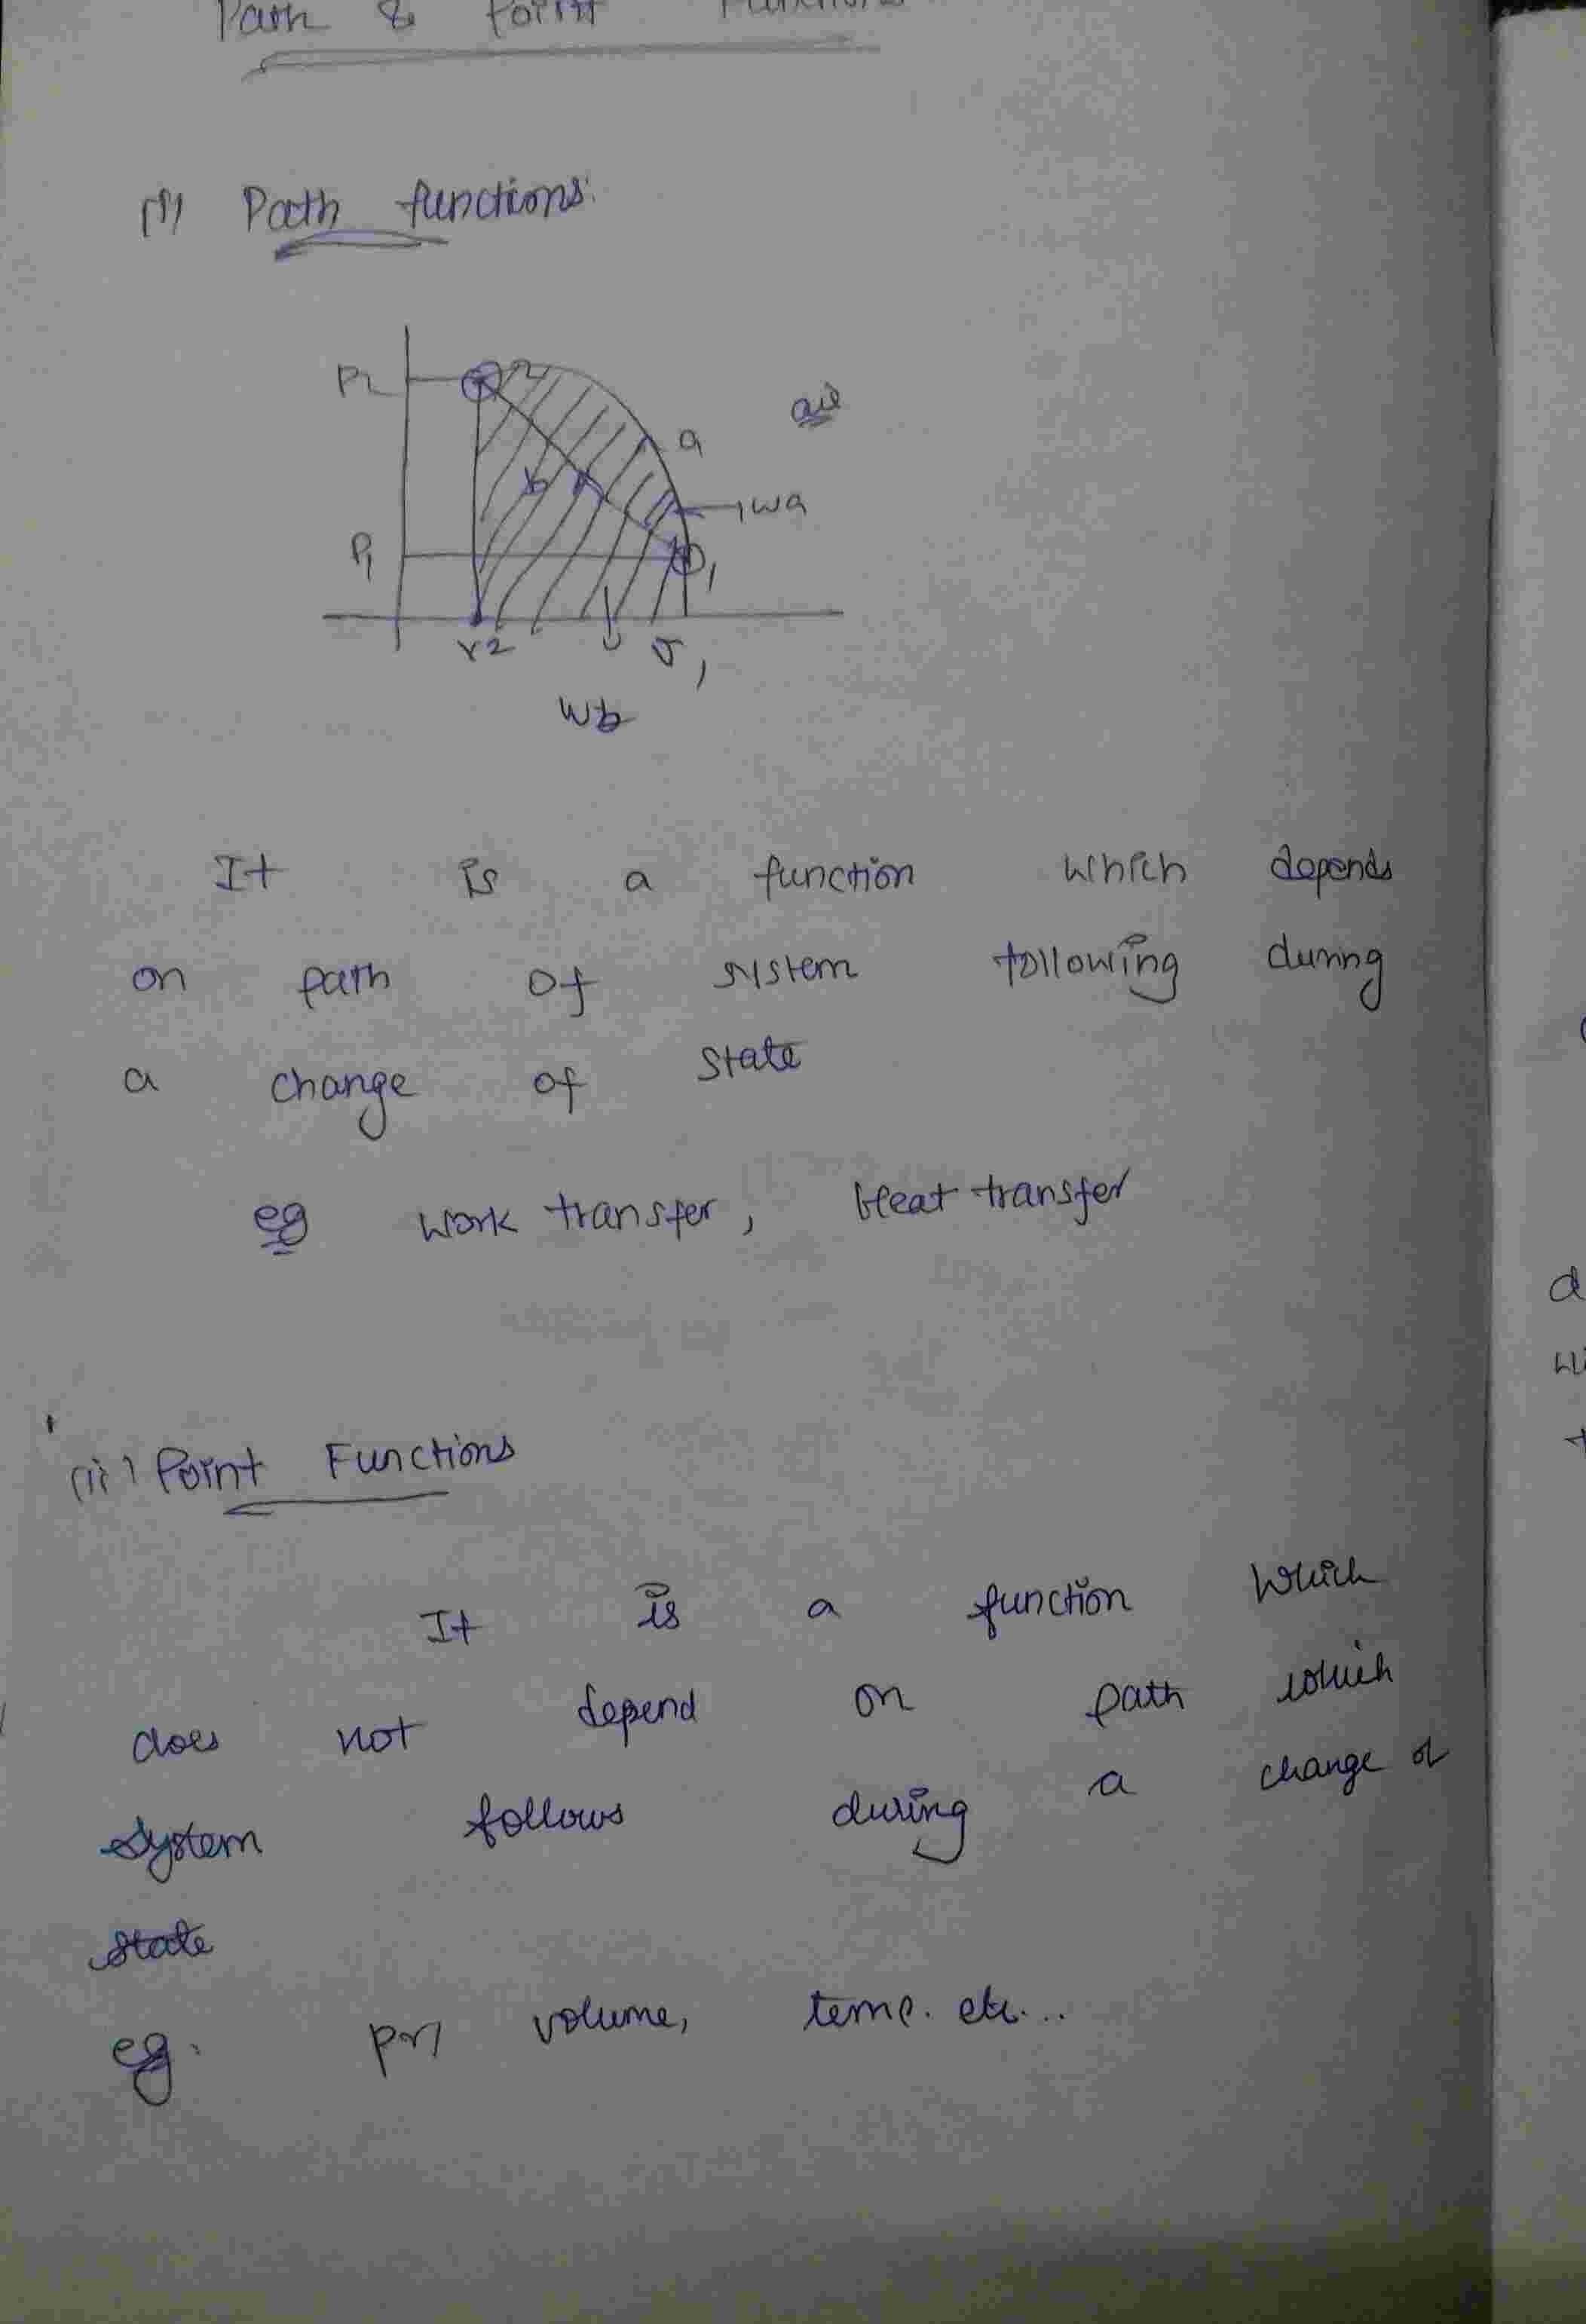 Path & Point Functions
(i) Path functions:
P2
2
a
b
wa
P1
1
v2
v1
wb
It is a function which depends
on path of system following during
a change of state
eg work transfer, Heat transfer
(ii) Point Functions
It is a function which
does not depend on path which
system follows during a change of
state
eg. volume, temp. etc...